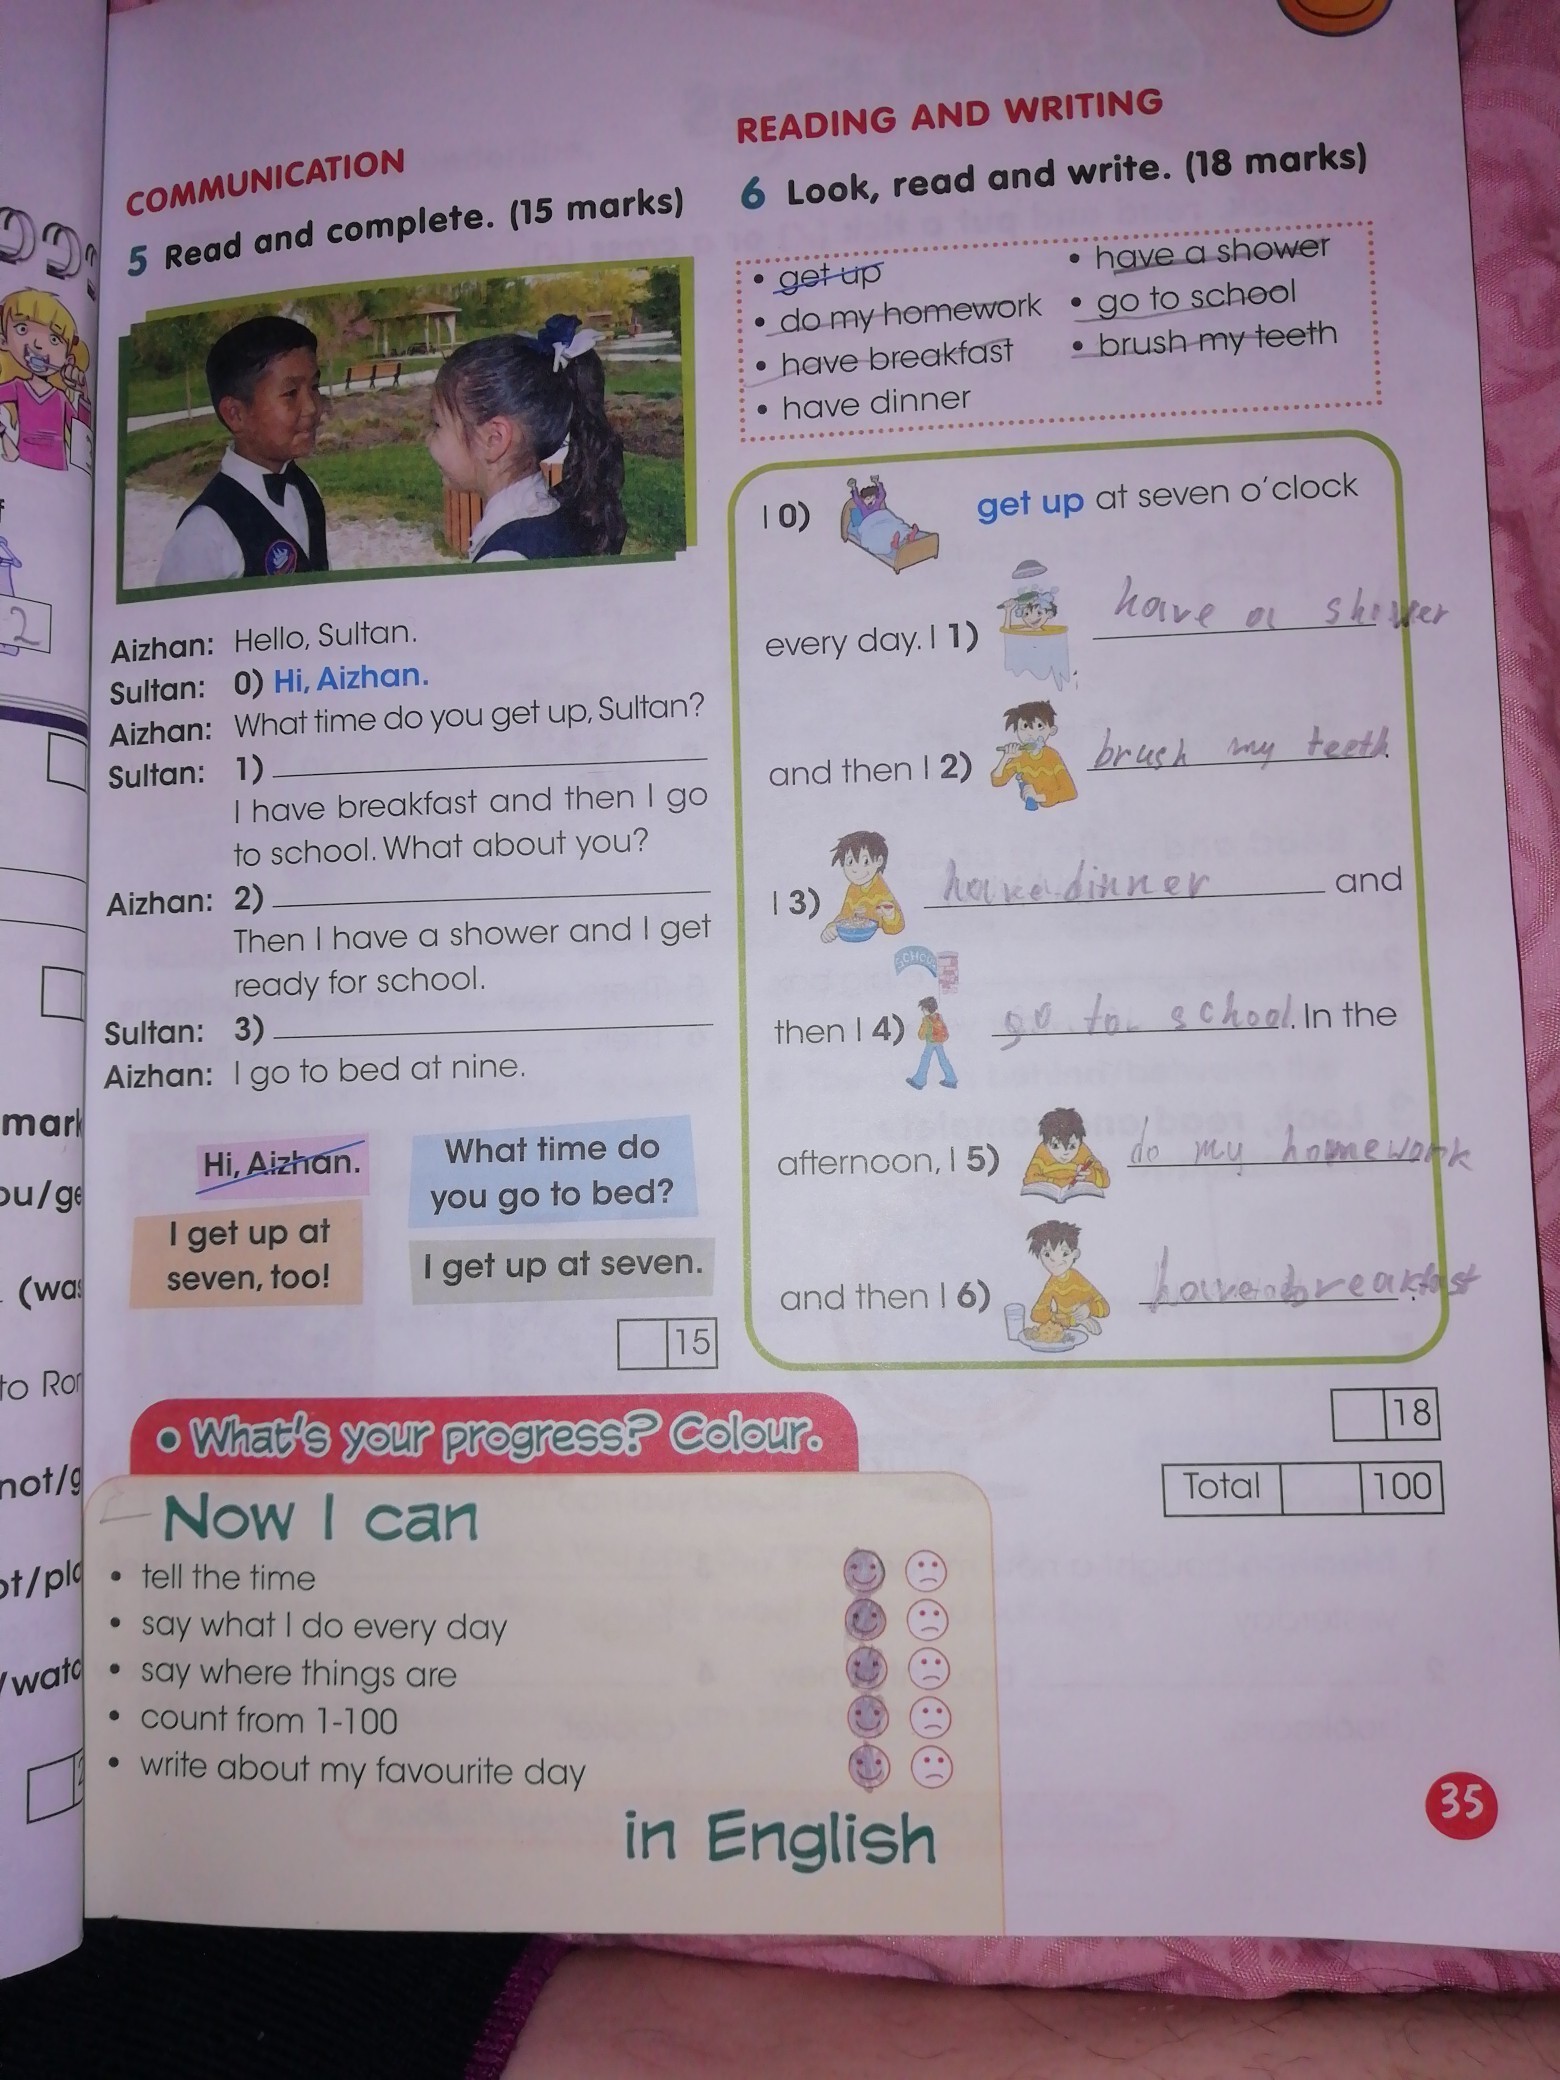 COMMUNICATION
5 Read and complete. (15 marks)
Aizhan: Hello, Sultan.
Sultan: 0) Hi, Aizhan.
Aizhan: What time do you get up, Sultan?
Sultan: 1)
I have breakfast and then I go
to school. What about you?
Aizhan: 2)
Then I have a shower and I get
ready for school.
Sultan: 3)
Aizhan: I go to bed at nine.
Hi, Aizhan.
What time do
you go to bed?
I get up at
seven, too!
I get up at seven.
15
READING AND WRITING
6 Look, read and write. (18 marks)
• get up
• do my homework
• have breakfast
• have dinner
• have a shower
• go to school
• brush my teeth
I 0) get up at seven o'clock
every day. I 1) have a shower
and then I 2) brush my teeth.
I 3) have dinner and
SCHOOL
then I 4) go to school. In the
afternoon, I 5) do my homework
and then I 6) have breakfast.
18
Total 100
• What's your progress? Colour.
Now I can
• tell the time
• say what I do every day
• say where things are
• count from 1-100
• write about my favourite day
in English
35
3
2
mark
ou/ge
(was
to Ror
not/g
ot/pla
/watc